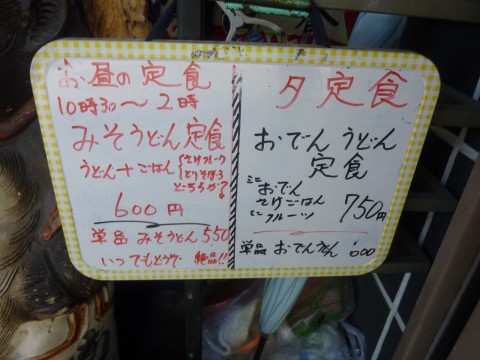 お昼の定食
10時30〜2時
みそうどん定食
うどん+ごはん
さけフレーク
とりそぼろ
どちらか?
600円
単品 みそうどん 550
いつでもどうぞ 絶品!!
夕定食
おでんうどん
定食
ミニ
おでん
さけごはん
ミニ
フルーツ
750円
単品 おでんうどん 600